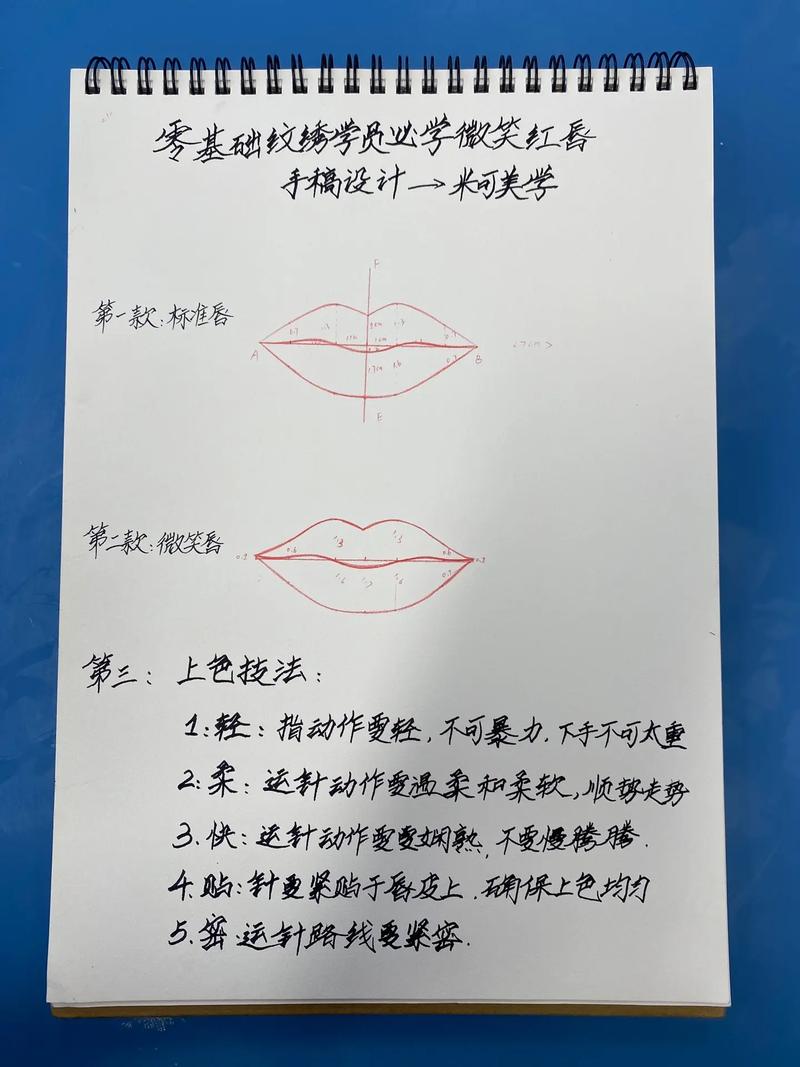 零基础纹绣学员必学微笑红唇
手稿设计→米可美学
F
第一款:标准唇
0.7
A
B
0.7
E
第二款:微笑唇
0.6
0.6
第三:上色技法:
1:轻:指动作要轻,不可暴力.下手不可太重
2:柔:运针动作要温柔和柔软,顺势走势
3.快:运针动作要要娴熟,不要慢腾腾.
4.贴:针要紧贴于唇皮上.确保上色均匀
5.密:运针路线要紧密.